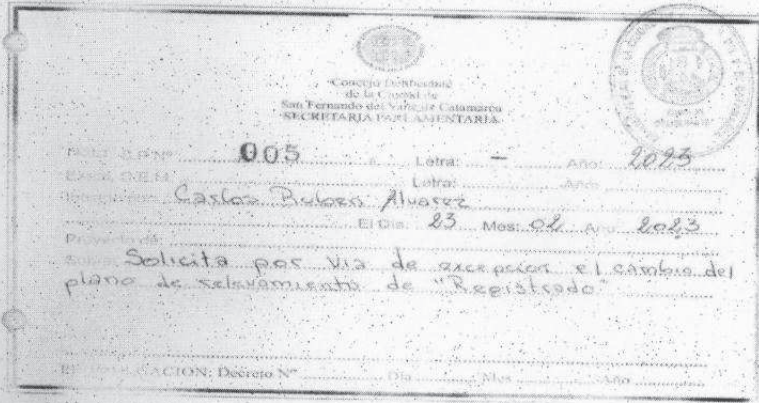 Concejo Deliberante
de la Ciudad de
San Fernando del Valle de Catamarca
SECRETARIA PARLAMENTARIA
005 Letra: - Año: 2023
Letra: Año:
Carlos Ruben Alvarez
El Día: 23 Mes: 02 Año 2023
Proyecto de:
Solicita por via de excepcion el cambio del
plano de relevamiento de "Registrado"
Decreto Nº Día Mes Año